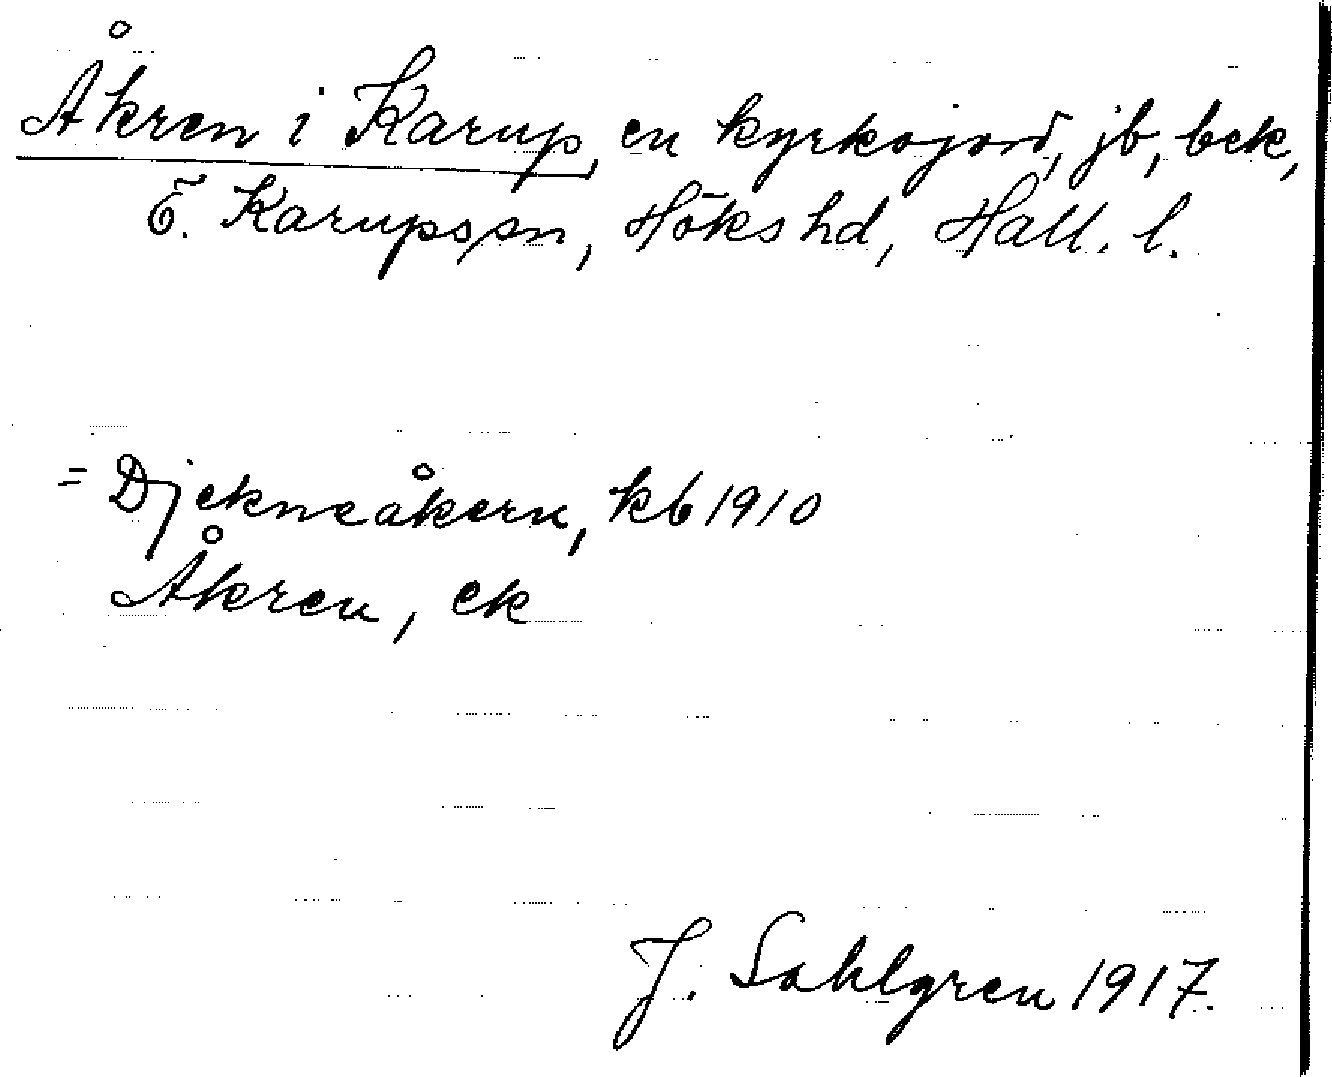 Åkren i Karup, en kyrkojord, jb, bek,
Ö. Karups sn, Höks hd, Hall. l.
= Djekneåkern, kb 1910
Åkren, ek
J. Sahlgren 1917.